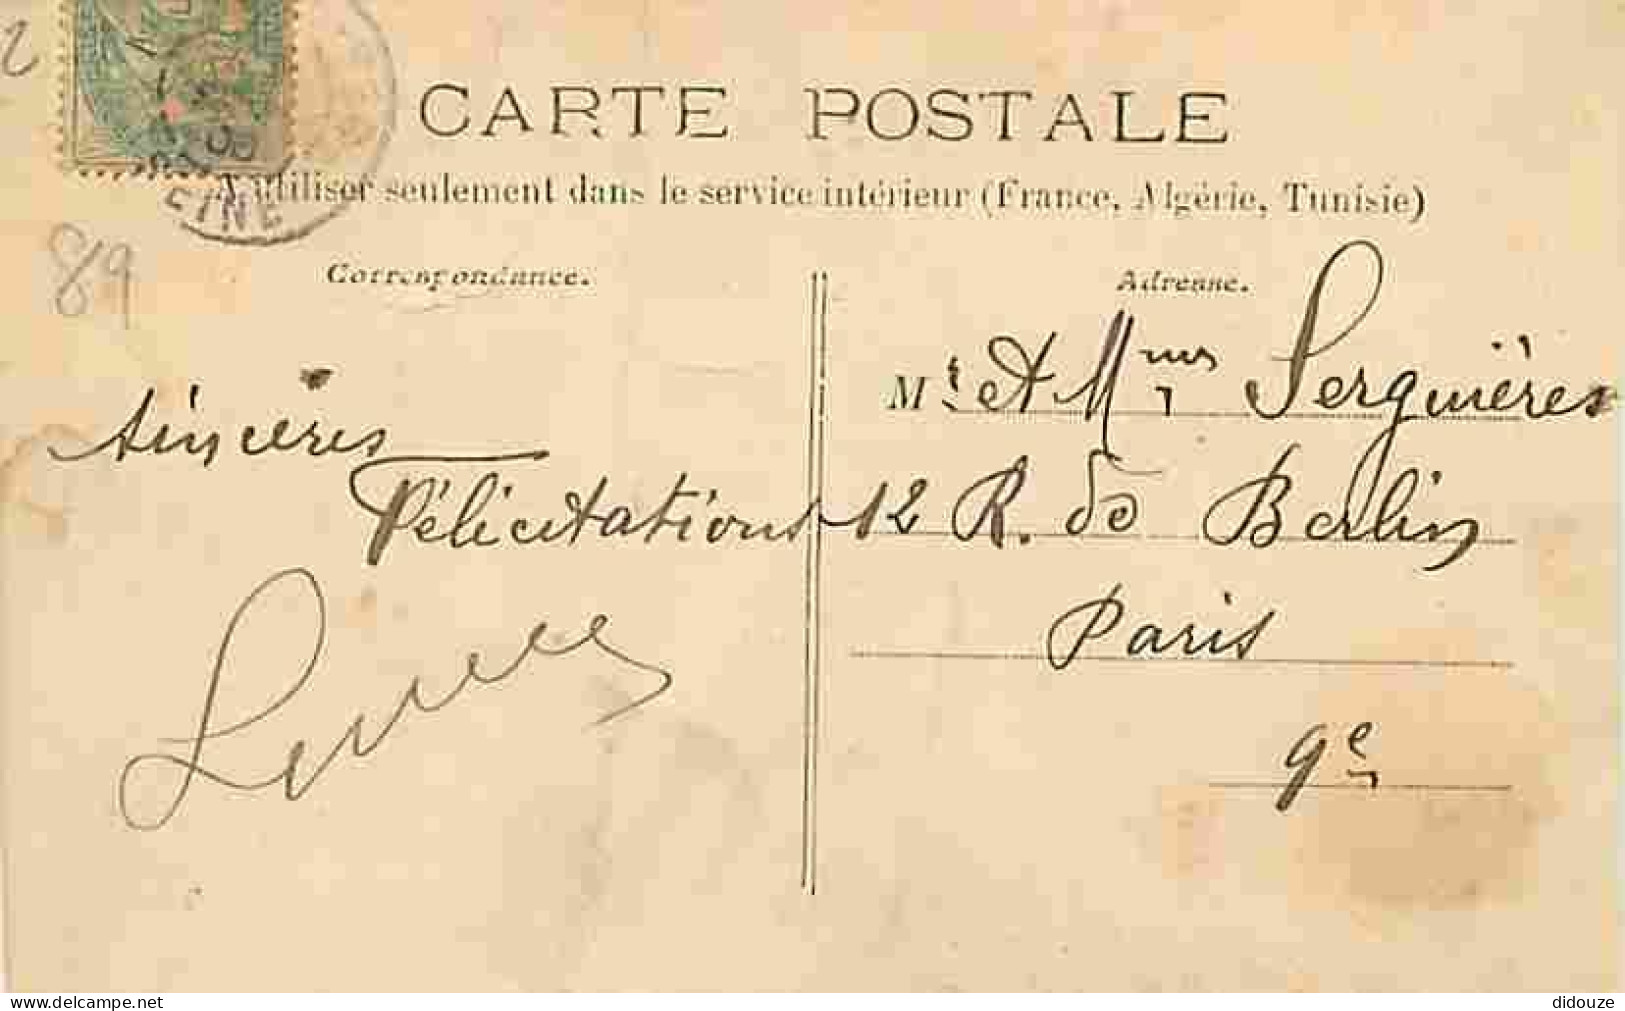 2
CARTE POSTALE
A utiliser seulement dans le service intérieur (France, Algérie, Tunisie)
EINE
89
Correspondance.
Sincères
Félicitations
Adresse.
Mr et Mmes Serguières
12 R. de Berlin
Paris
9e
www.delcampe.net
didouze